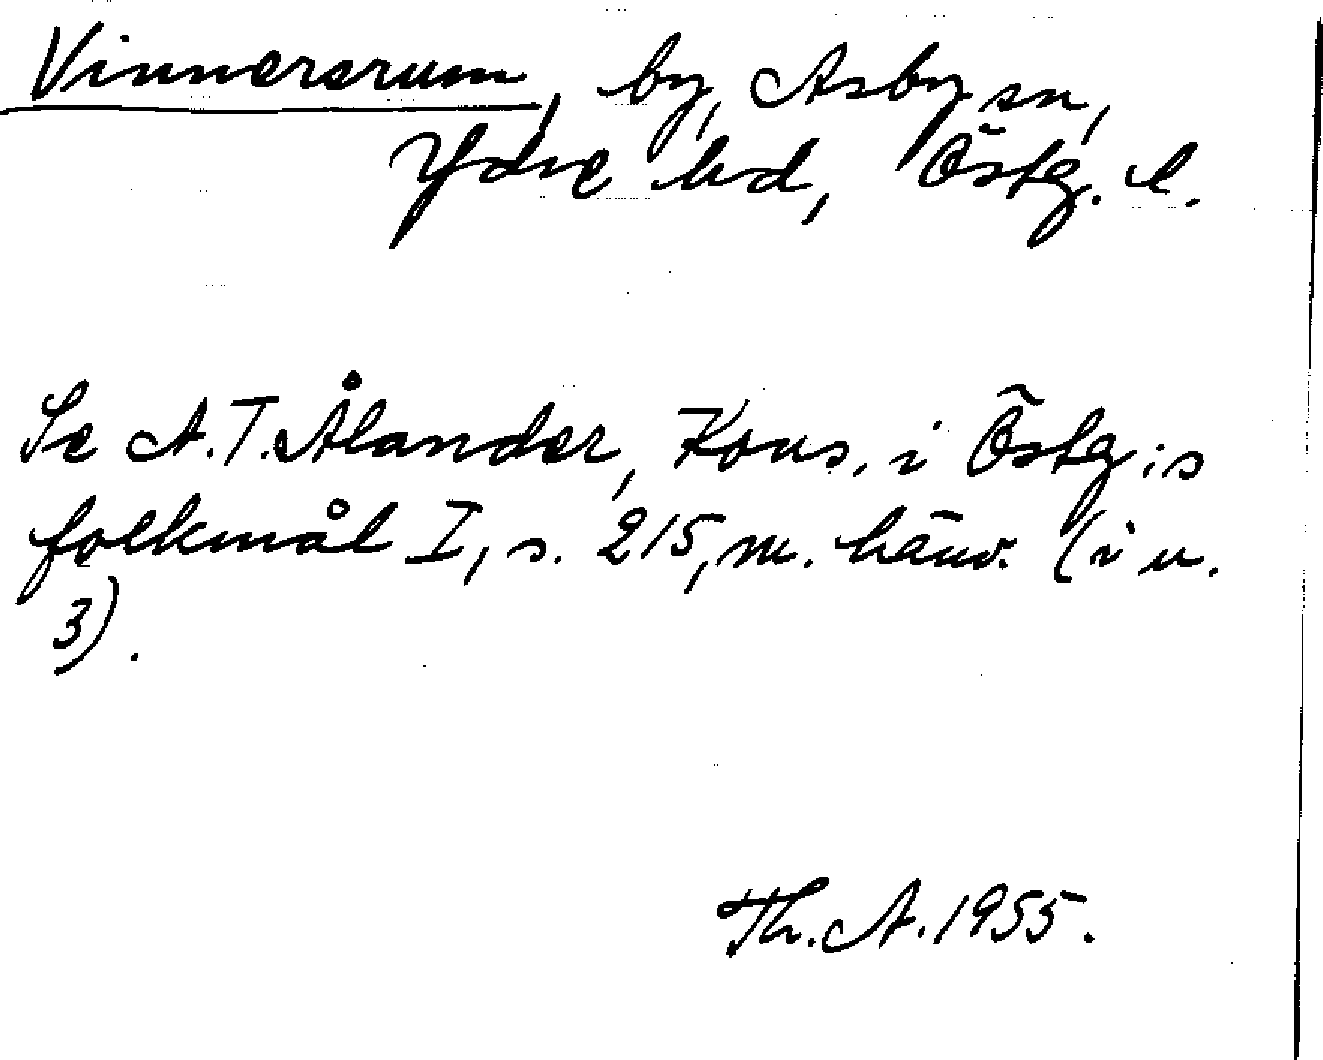 Vinnererum, by, Asby sn,
Ydre hd, Östg. l.
Se A.T. Ålander, Kons. i Östg:s
folkmål I, s. 215, m. hänv. (i n.
3).
Th. A. 1955.